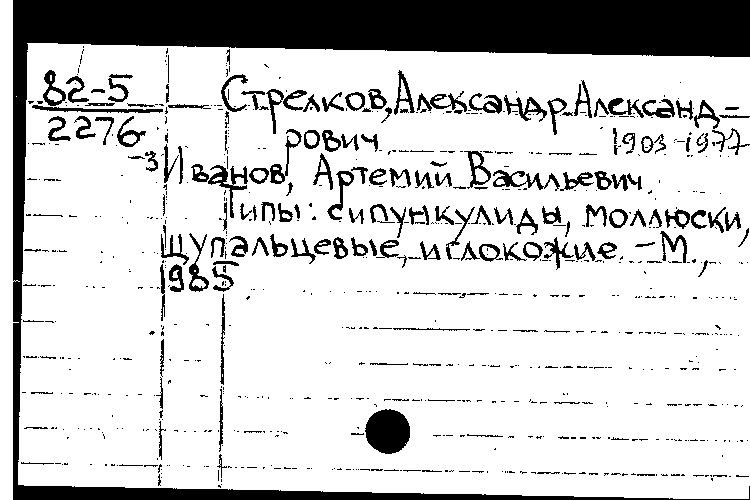 82-5
2276-3
Стрелков, Александр Александ-
рович 1903-1977
Иванов, Артемий Васильевич.
Типы: сипункулиды, моллюски,
щупальцевые, иглокожие. - М.,
1985